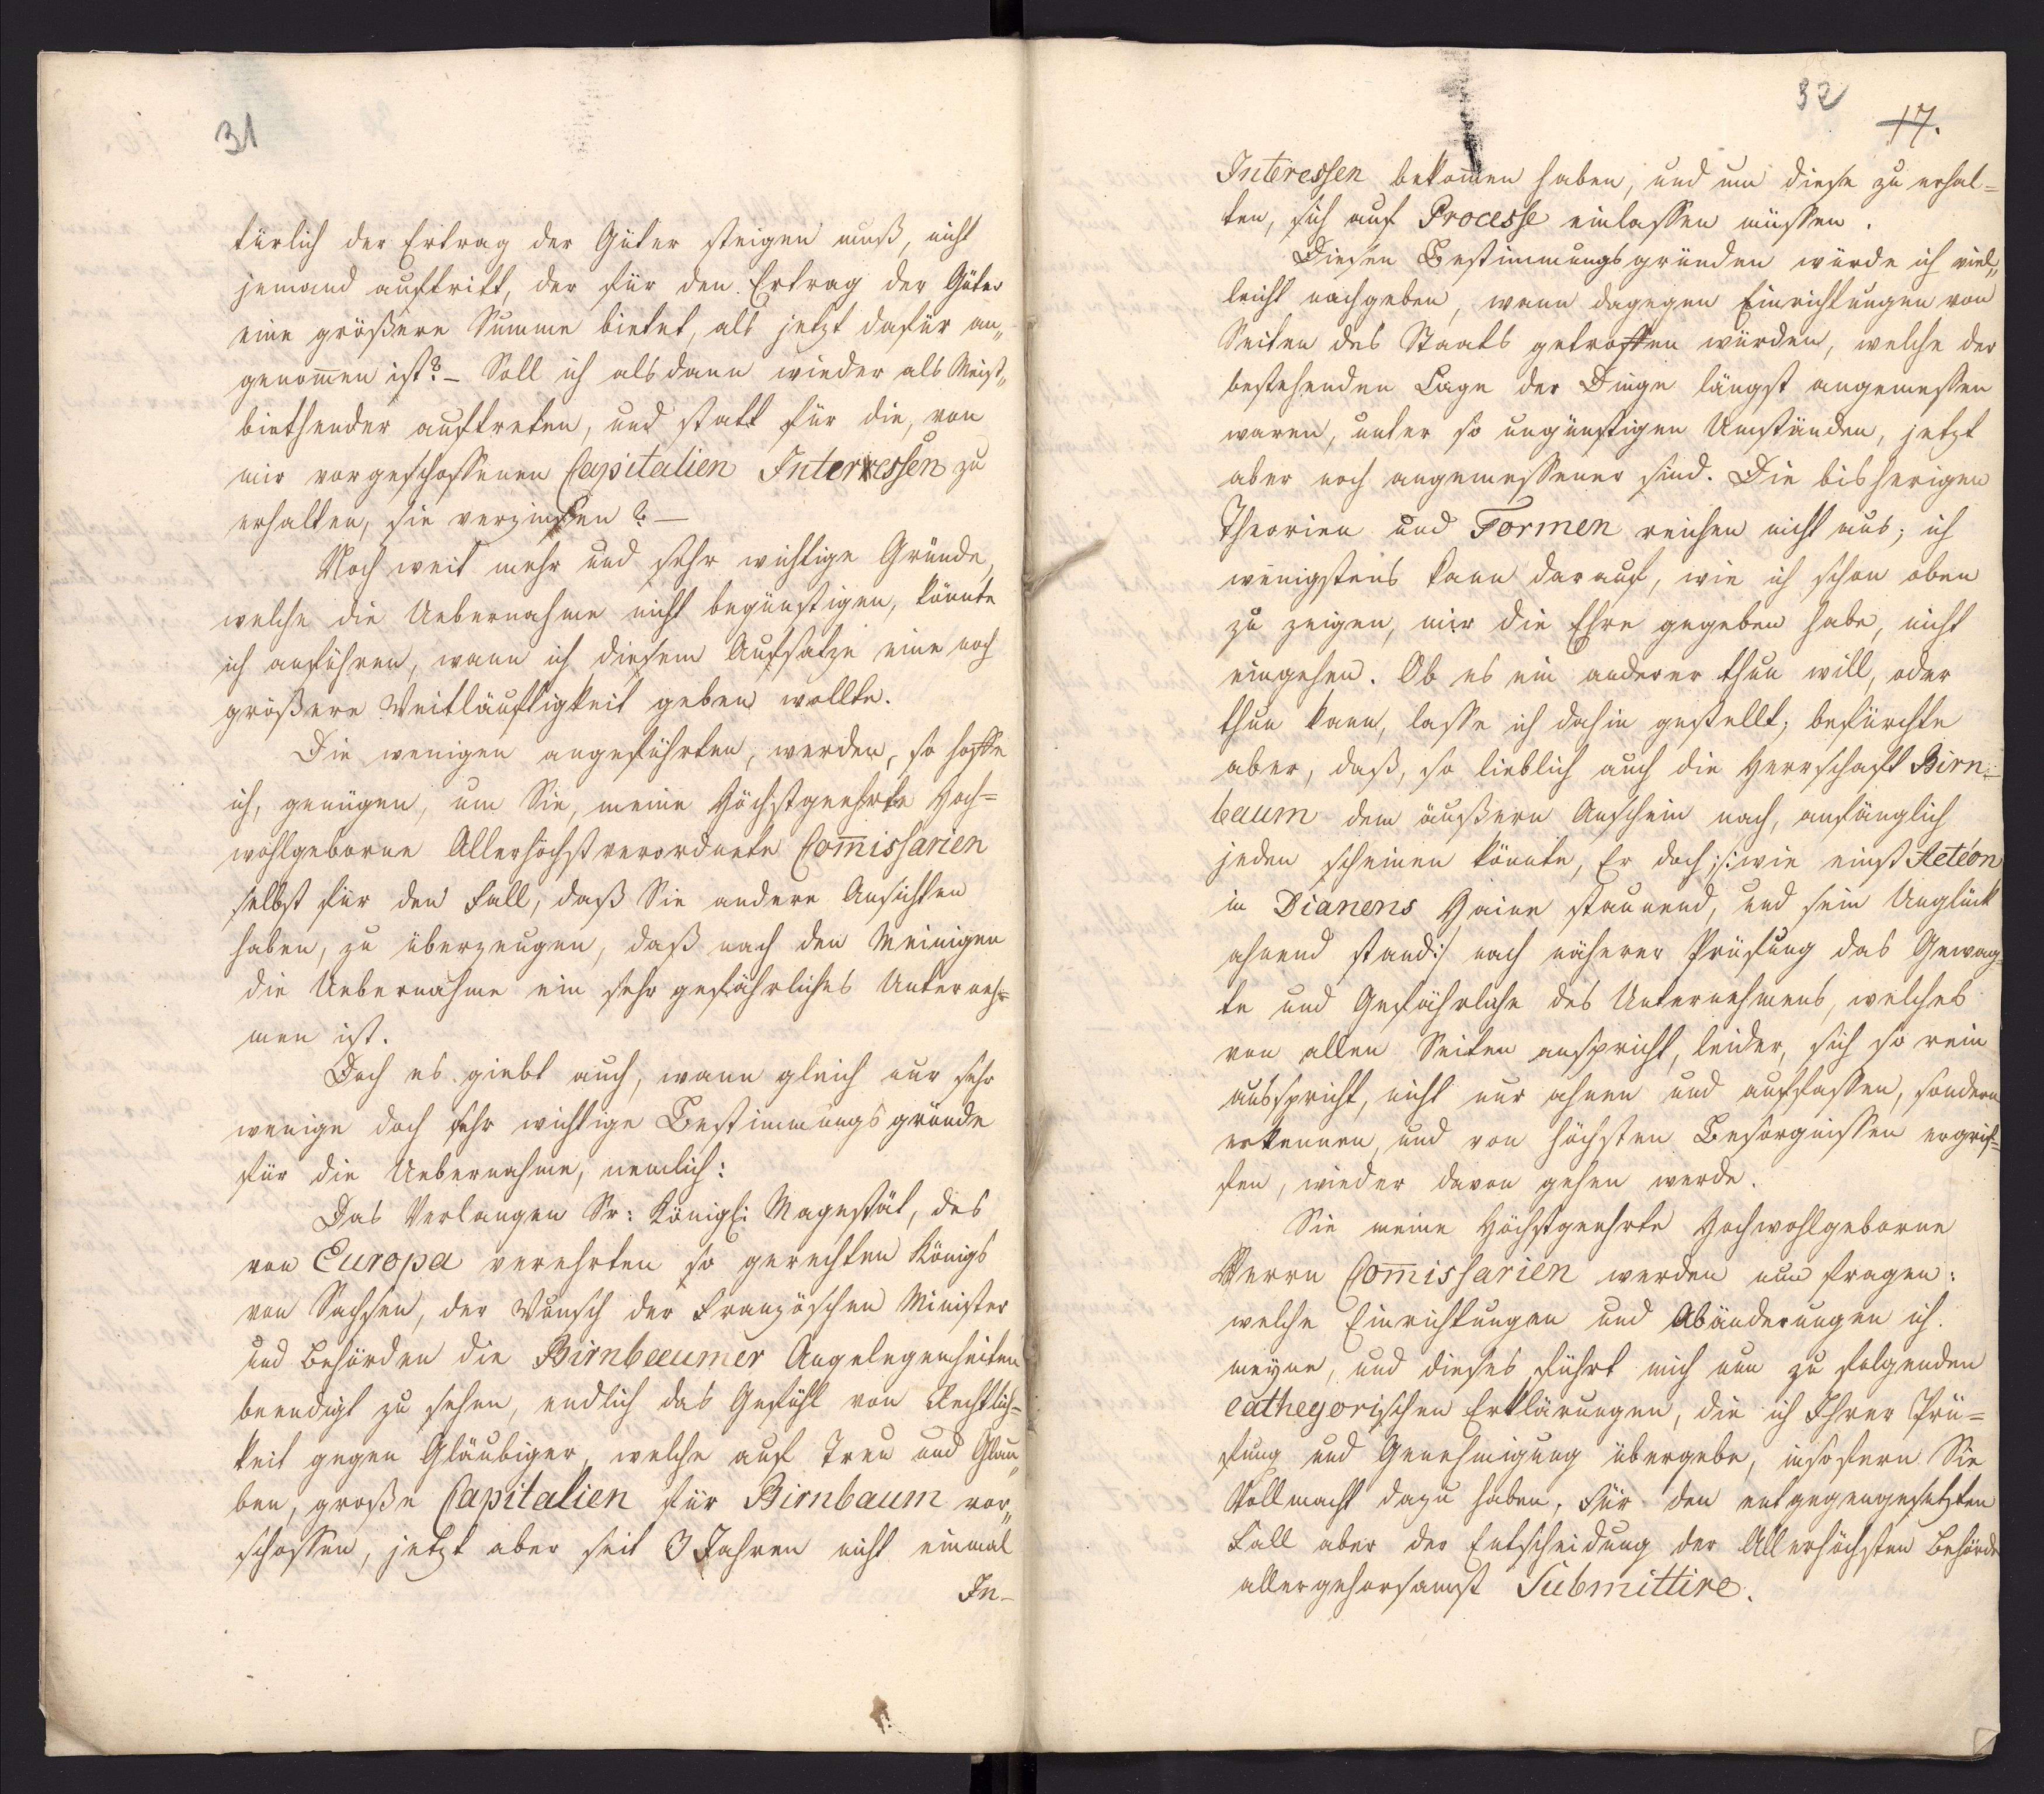 31
türlich der Ertrag der Güter steigen muß, nicht
jemand auftritt, der für den Ertrag der Güter
eine größere Summe bietet, als jetzt dafür an„
genom̄en ist? – Soll ich alsdann wieder als Meist„
biethender auftreten, und statt für die, von
mir vorgeschossenen Capitalien Interressen zu
erhalten, sie verzinsen? –
Noch weit mehr und sehr wichtige Gründe,
welche die Uebernahme nicht begünstigen, könnte
ich anführen, wann ich diesem Aufsatze eine noch
größere Weitläuftigkeit geben wollte.
Die wenigen angeführten, werden, so hoffe
ich, genügen, um Sie, meine Höchstgeehrte Hoch=
wohlgeborne Allerhöchstverordnete Com̄issarien
selbst für den Fall, daß Sie andere Ansichten
haben, zu überzeugen, daß nach den Meinigen
die Uebernahme ein sehr gefährliches Unterneh=
men ist.
Doch es giebt auch, wann gleich nur sehr
wenige doch sehr wichtige Bestimmungsgründe
für die Uebernahme, nemlich:
Das Verlangen Sr: Königl: Magestät, des
von Europa verehrten so gerechten Königs
von Sachsen, der Wunsch der Französchen Minister
und Behörden die Birnbaumer Angelegenheiten
beendigt zu sehen, endlich das Gefühl von Rechtlich=
keit gegen Gläubiger, welche auf Treu und Glau„
ben, große Capitalien für Birnbaum vor„
schossen, jetzt aber seit 3 Jahren nicht einmal
In-
32
17.
Interessen bekom̄en haben, und um diese zu erhal=
ten, sich auf Processe einlassen müssen.
Diesen Bestimmungsgründen würde ich viel„
leicht nachgeben, wann dagegen Einrichtungen von
Seiten des Staats getroffen würden, welche der
bestehenden Lage der Dinge längst angemessen
waren, unter so ungünstigen Umständen, jetzt
aber noch angemessener sind. Die bisherigen
Theorien und Formen reichen nicht aus; ich
wenigstens kann darauf, wie ich schon oben
zu zeigen, mir die Ehre gegeben habe, nicht
eingehen. Ob es ein anderer thun will, oder
thun kann, lasse ich dahin gestellt; befürchte
aber, daß, so lieblich auch die Herrschaft Birn=
baum dem äußern Anschein nach, anfänglich
jeden scheinen könnte, Er doch /: wie einst Actéon
in Dianens Haine staunend, und sein Unglück
ahnend stand :/ nach näherer Prüfung das Gewag=
te und Gefährliche des Unternehmens, welches
von allen Seiten anspricht, leider, sich so rein
ausspricht, nicht nur ahnen und auffassen, sondern
erkennen, und von höchsten Besorgnissen ergrif=
fen, wieder davon gehen werde.
Sie meine Höchstgeehrte Hochwohlgeborne
Herrn Com̄issarien werden nun fragen:
welche Einrichtungen und Abänderungen ich
meyne, und dieses führt mich nun zu folgenden
cathegorischen Erklärungen, die ich Ihrer Prü=
fung und Genehmigung übergebe, insofern Sie
Vollmacht dazu haben, für den entgegengesetzten
Fall aber der Entscheidung der Allerhöchsten Behörde
allergehorsamst Submittire.